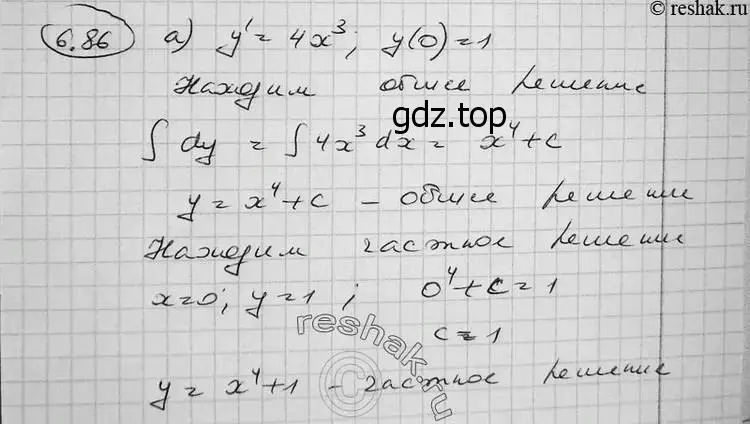 © reshak.ru
6.86 а) y' = 4x³; y(0)=1
Находим общее решение
gdz.top
∫ dy = ∫ 4x³ dx = x⁴+c
y = x⁴+c – общее решение
Находим частное решение
x=0; y=1; 0⁴+c=1
reshak.ru
c=1
©
y = x⁴+1 – частное решение